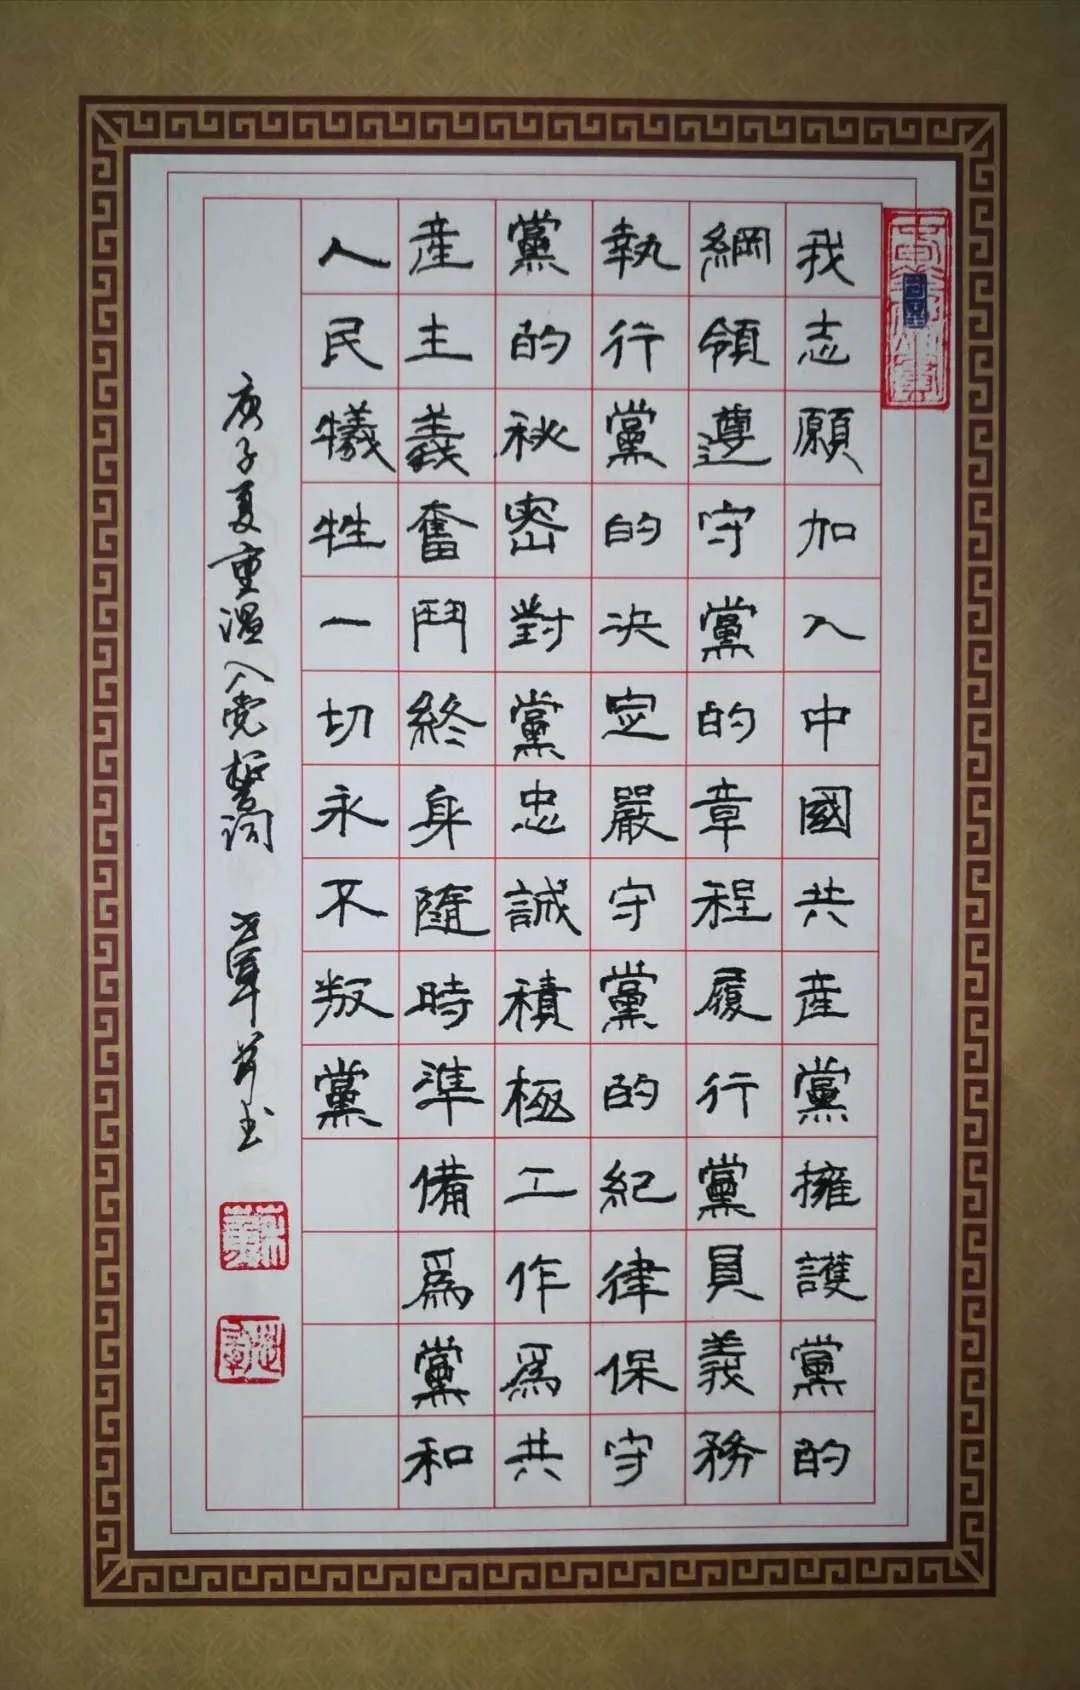 我志願加入中國共産黨擁護黨的
綱領遵守黨的章程履行黨員義務
執行黨的決定嚴守黨的紀律保守
黨的秘密對黨忠誠積極工作爲共
産主義奮鬥終身隨時準備爲黨和
人民犧牲一切永不叛黨
庚子夏重温入党誓词